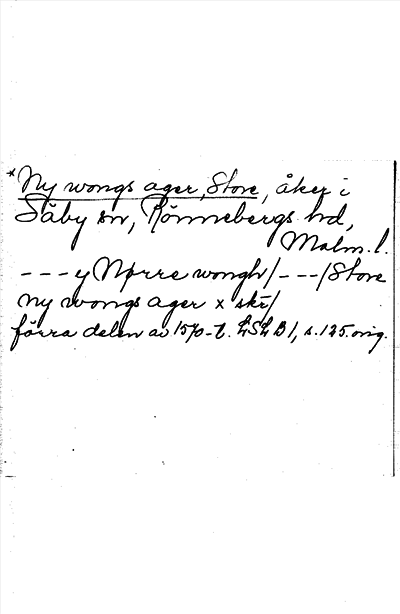 *Ny wongs ager, Store, åker i
Säby sn, Rönnebergs hd,
Malm. l.
--- y Nørre wongh/ --- /Store
ny wongs ager x skr/
förra delen av 1570-t. LSLB1, s. 125. orig.